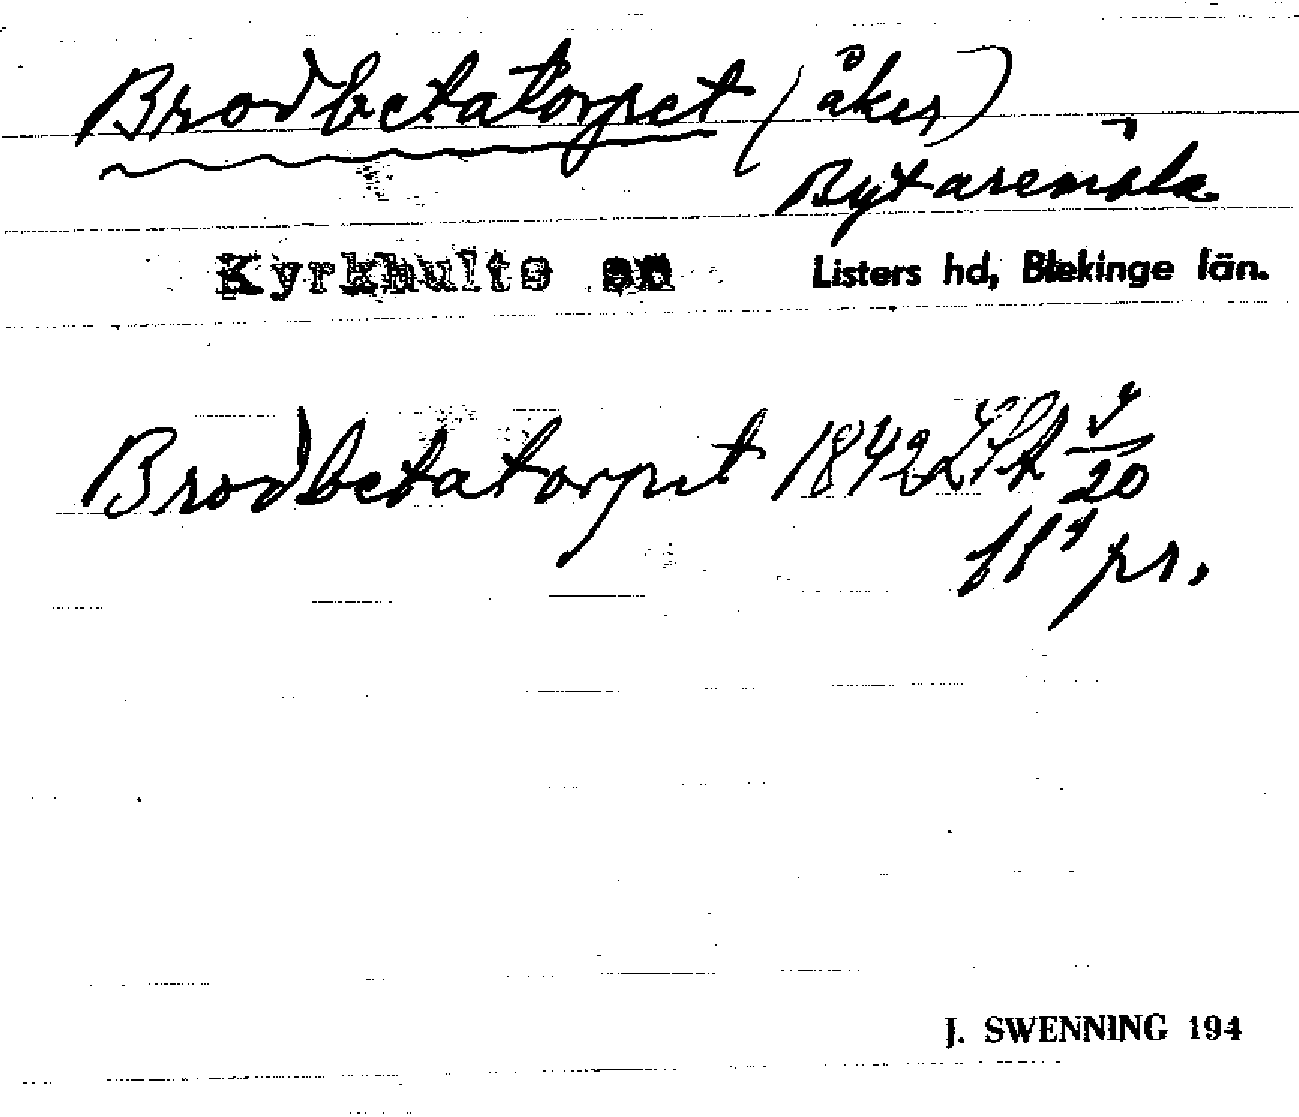 Brodbetatorpet (åker)
Bytaremåla
Kyrkhults sn Listers hd, Blekinge län.
Brodbetatorpet 1842 LSk
20
pr.
J. SWENNING 194